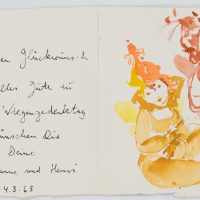 en Glückwunsch
lles Gute zu
wünschen Dir
Deine
anne und Henri
4.3.63